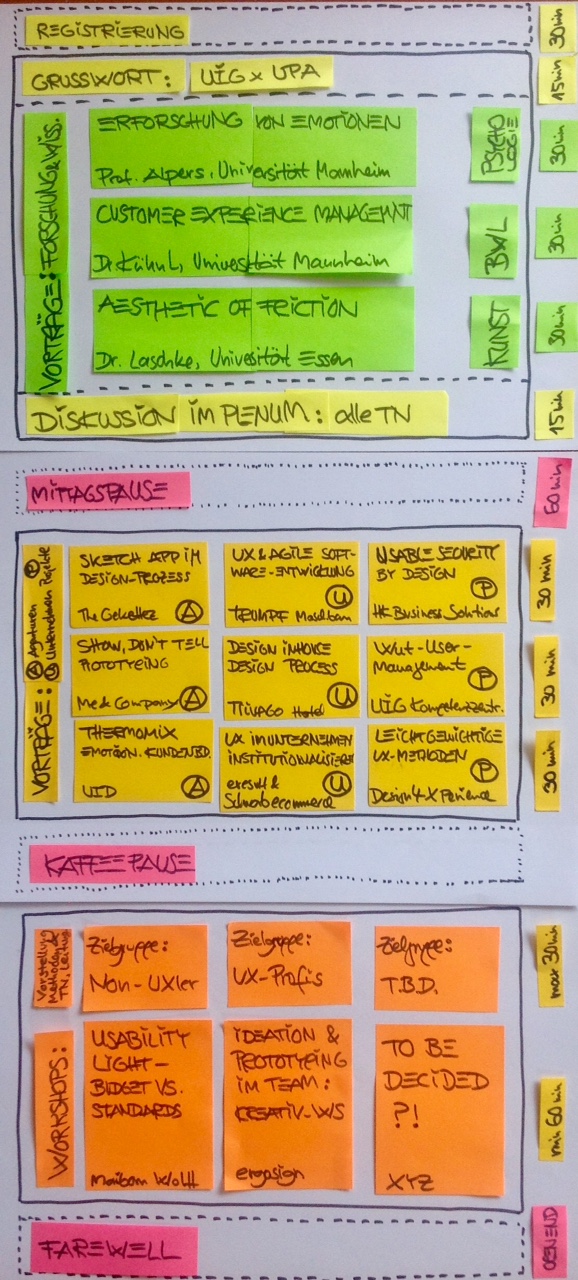 REGISTRIERUNG
30 min
GRUSSWORT: UIG x UPA
15 min
VORTRÄGE: FORSCHUNG & WISS.
ERFORSCHUNG VON EMOTIONEN
Prof. Alpers, Universität Mannheim
PSYCHO
LOGIE
30 min
CUSTOMER EXPERIENCE MANAGEMNT
Dr. Kühnl, Universität Mannheim
BWL
30 min
AESTHETIC OF FRICTION
Dr. Laschke, Univesität Essen
KUNST
30 min
DISKUSSION IM PLENUM: alle TN
15 min
MITTAGSPAUSE
60 min
VORTRÄGE:
Ⓐ Agenturen Ⓟ
Ⓤ Unternehmen Projekte
SKETCH APP IM
DESIGN-PROZESS
Ⓐ
UX & AGILE SOFT-
WARE-ENTWICKLUNG
TRUMPF
Ⓤ
USABLE SECURITY
BY DESIGN
HK Business Solutions
Ⓟ
30 min
SHOW, DON'T TELL
PROTOTYPING
Me & Company Ⓐ
DESIGN INHOUSE
DESIGN PROCESS
TRIVAGO Hotel Ⓤ
Wut-User-
Management
UIG Kompetenzzentr.
Ⓟ
30 min
THERMOMIX
EMOTION. KUNDENBD.
UID Ⓐ
UX IM UNTERNEHMEN
INSTITUTIONALISIEREN
eresult &
Schwabecommerce
Ⓤ
LEICHTGEWICHTIGE
UX-METHODEN
Design4Xperience
Ⓟ
30 min
KAFFEEPAUSE
Vorstellung
Methoden &
TN, Leitung
Zielgruppe:
Non-UXler
Zielgruppe:
UX-Profis
Zielgruppe:
T.B.D.
max 30 min
WORKSHOPS:
USABILITY
LIGHT –
BUDGET VS.
STANDARDS
Maibom Wolff
IDEATION &
PROTOTYPING
IM TEAM:
KREATIV-WS
ergosign
TO BE
DECIDED
?!
XYZ
min 60 min
FAREWELL
OPEN END